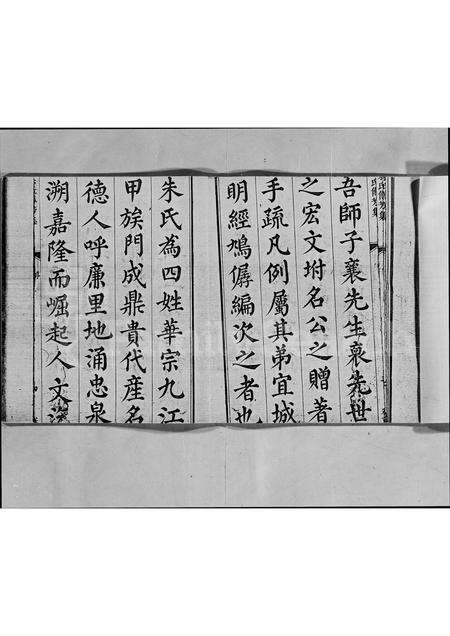 吾師子襄先生裒先世
之宏文坿名公之贈著
手疏凡例屬其弟宜城
明經鳩孱編次之者也
朱氏為四姓華宗九江
甲族門成鼎貴代產名
德人呼廉里地涌忠泉
溯嘉隆而崛起人文